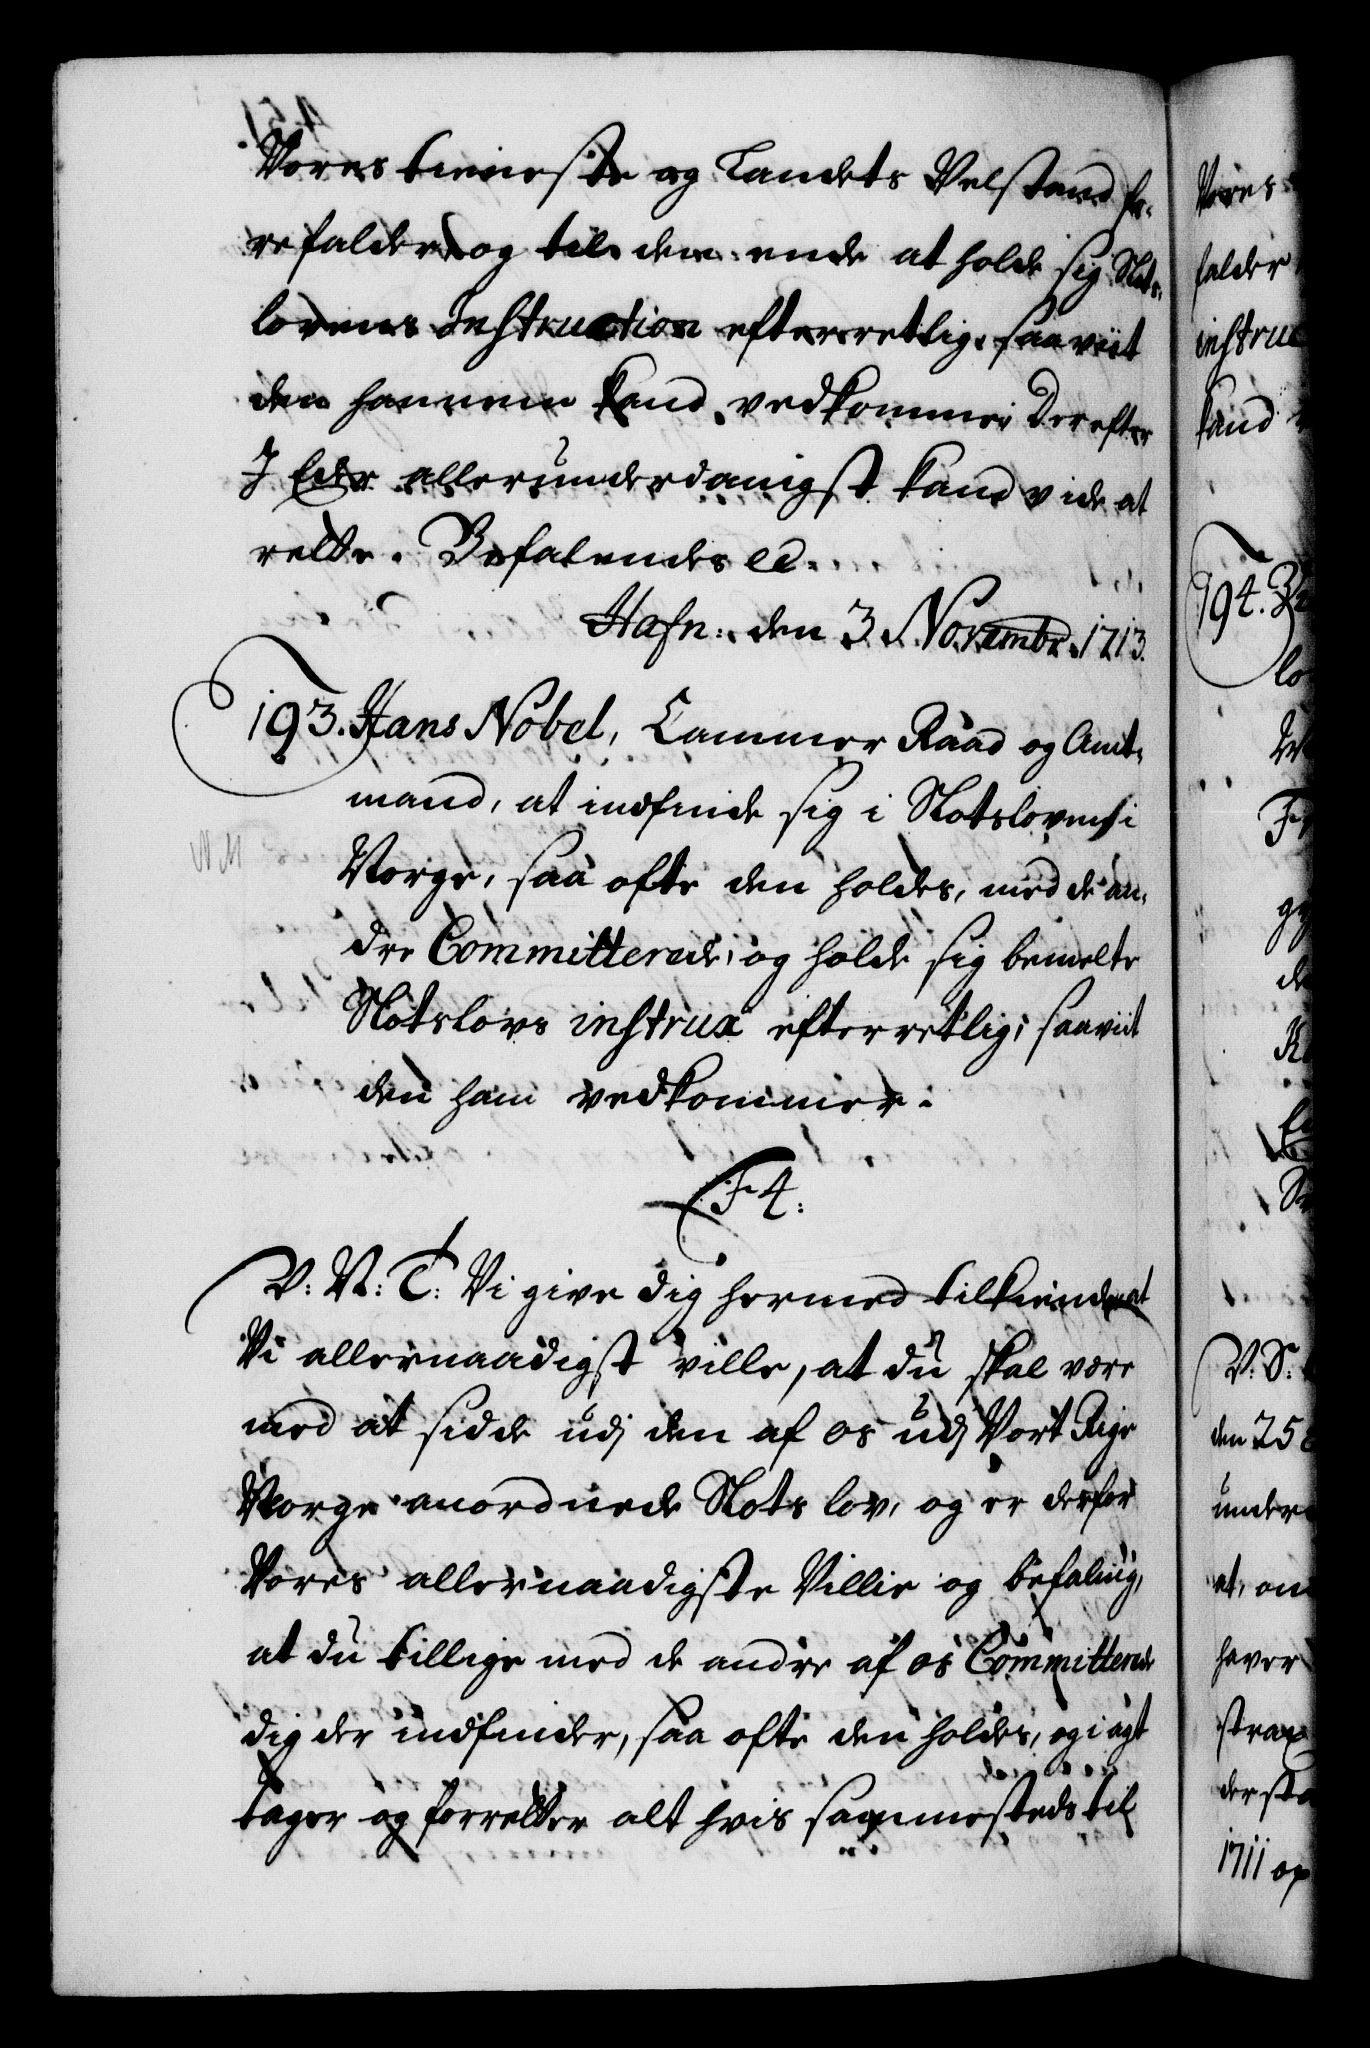 Vores tieniste og Landets Velstand fo-
refalder og til den ende at holde sig Slots-
lovens Instruction efterretlig, saaviit
den hannem kand vedkomme, Derefter
I Eder allerunderdanigst kand vide at
rette. Befalendes ec.
Hafn: den 3 Novembr. 1713.
193. Hans Nobel, Cammer Raad og Amt-
mand, at indfinde sig i Slotsloven i
Norge, saa ofte den holdes, med de an-
dre Committerede, og holde sig bemelte
Slotslovs instrux efterretlig, saaviit
den ham vedkommer.
F 4:
V: N: T: Vi give dig hermed tilkiende, at
Vi allernaadigst ville, at du skal være
med at sidde udj den af os udj Vort Rige
Norge anordnede Slots lov, og er derfor
Vores allernaadigste Villie og befaling,
at du tillige med de andre af os Committerede
dig der indfinder, saa ofte den holdes, og i agt
tager og forretter alt hvis sammesteds til
Vores
falder
instruc
kand
194.
V. S:
den 25
under
at, om
haver
strax
1711 op